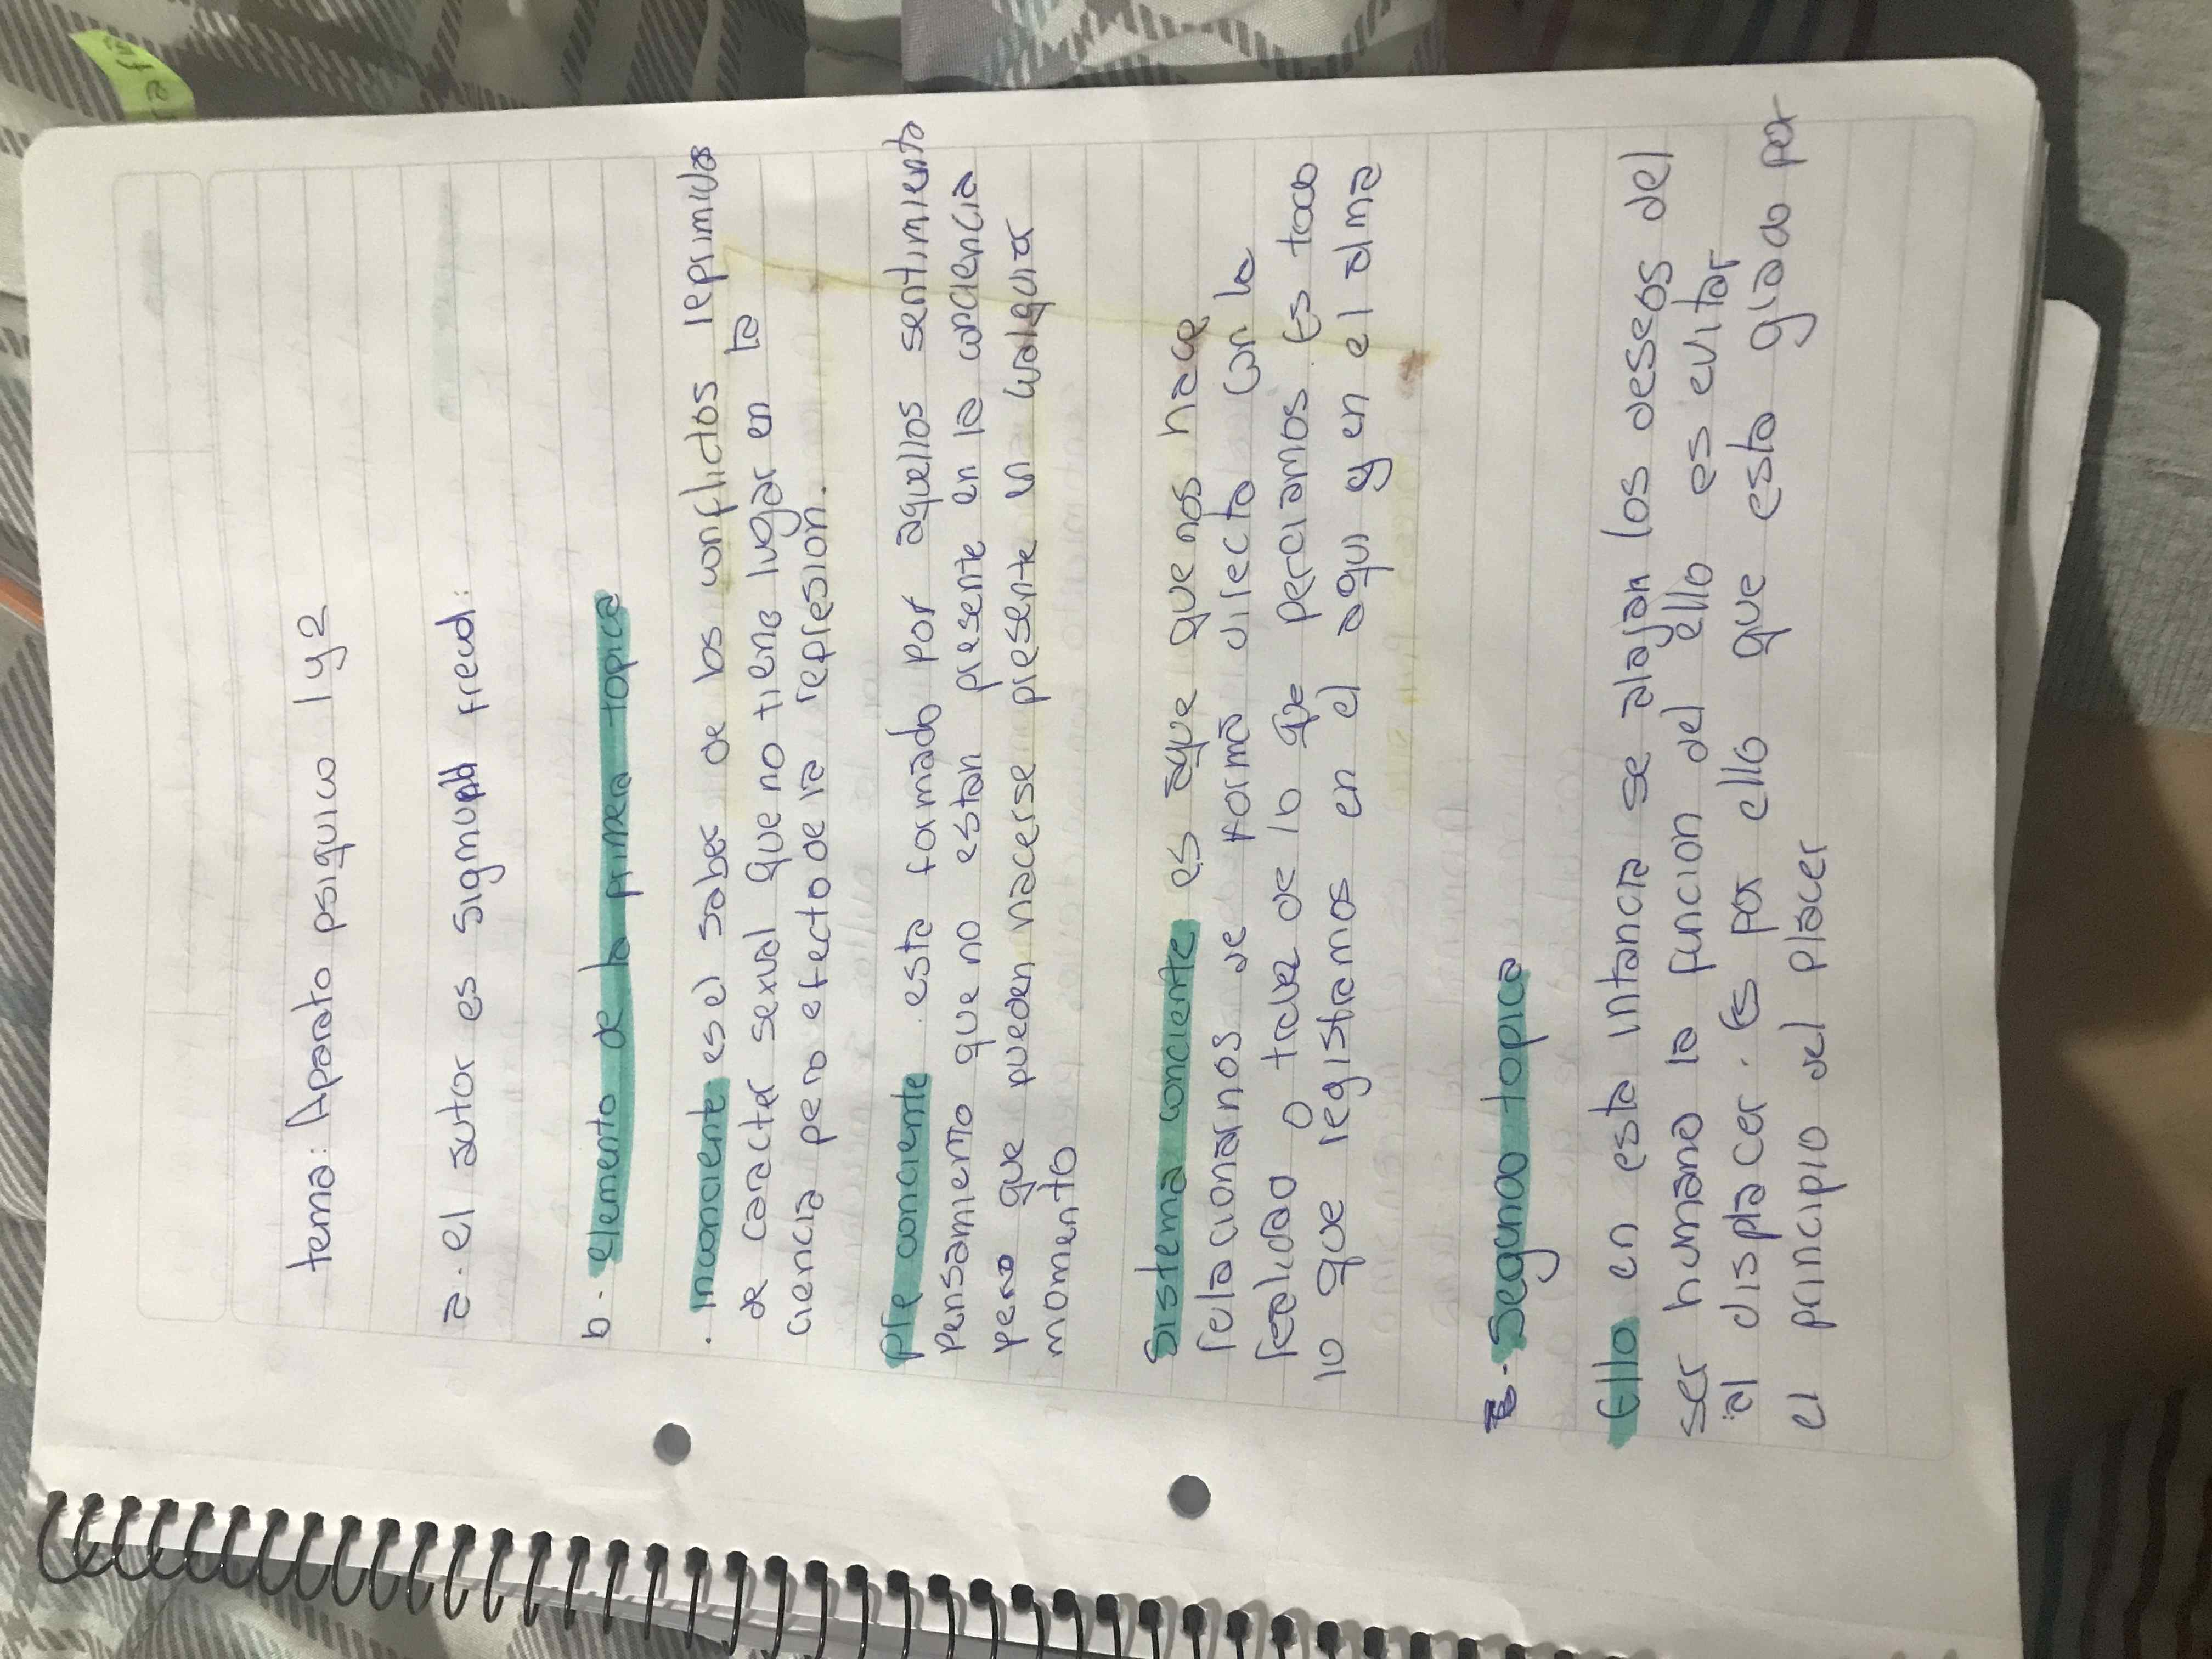 tema: Aparato psiquico 1 y 2
a. el autor es sigmund freud:
b. elemento de la primera topica
. inconciente es el saber de los conflictos reprimidos
de caracter sexual que no tiene lugar en la
ciencia pero efecto de la represion.
pre conciente esta formado por aquellos sentimiento
pensamiento que no estan presente en la conciencia
pero que pueden hacerse presente en cualquier
momento
Sistema conciente es aque que nos hace
relacionarnos de forma directa con la
realidad o trata de lo que perciamos. Es todo
lo que registramos en el aqui y en el alma
Segundo topica
Ello en esta intancia se alajan los deseos del
ser humano la funcion del ello es evitar
al displacer. Es por ello que esta giado por
el principio del placer